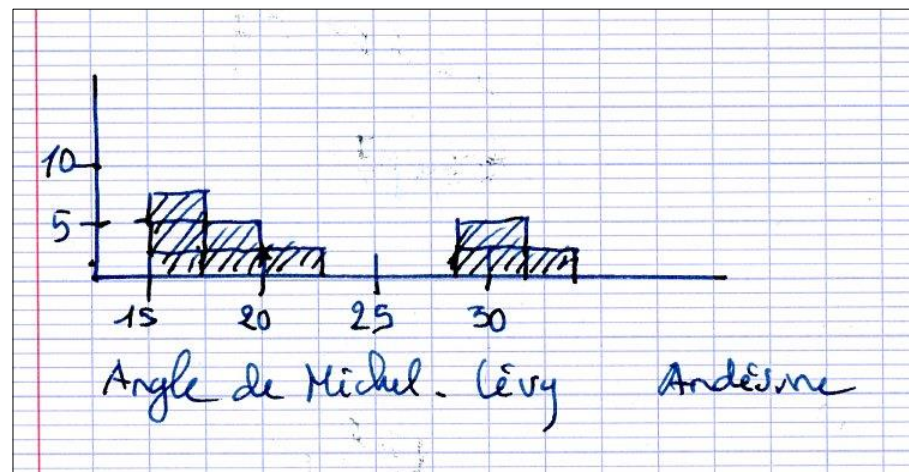 10
5
15 20 25 30
Angle de Michel-Lévy Andésine